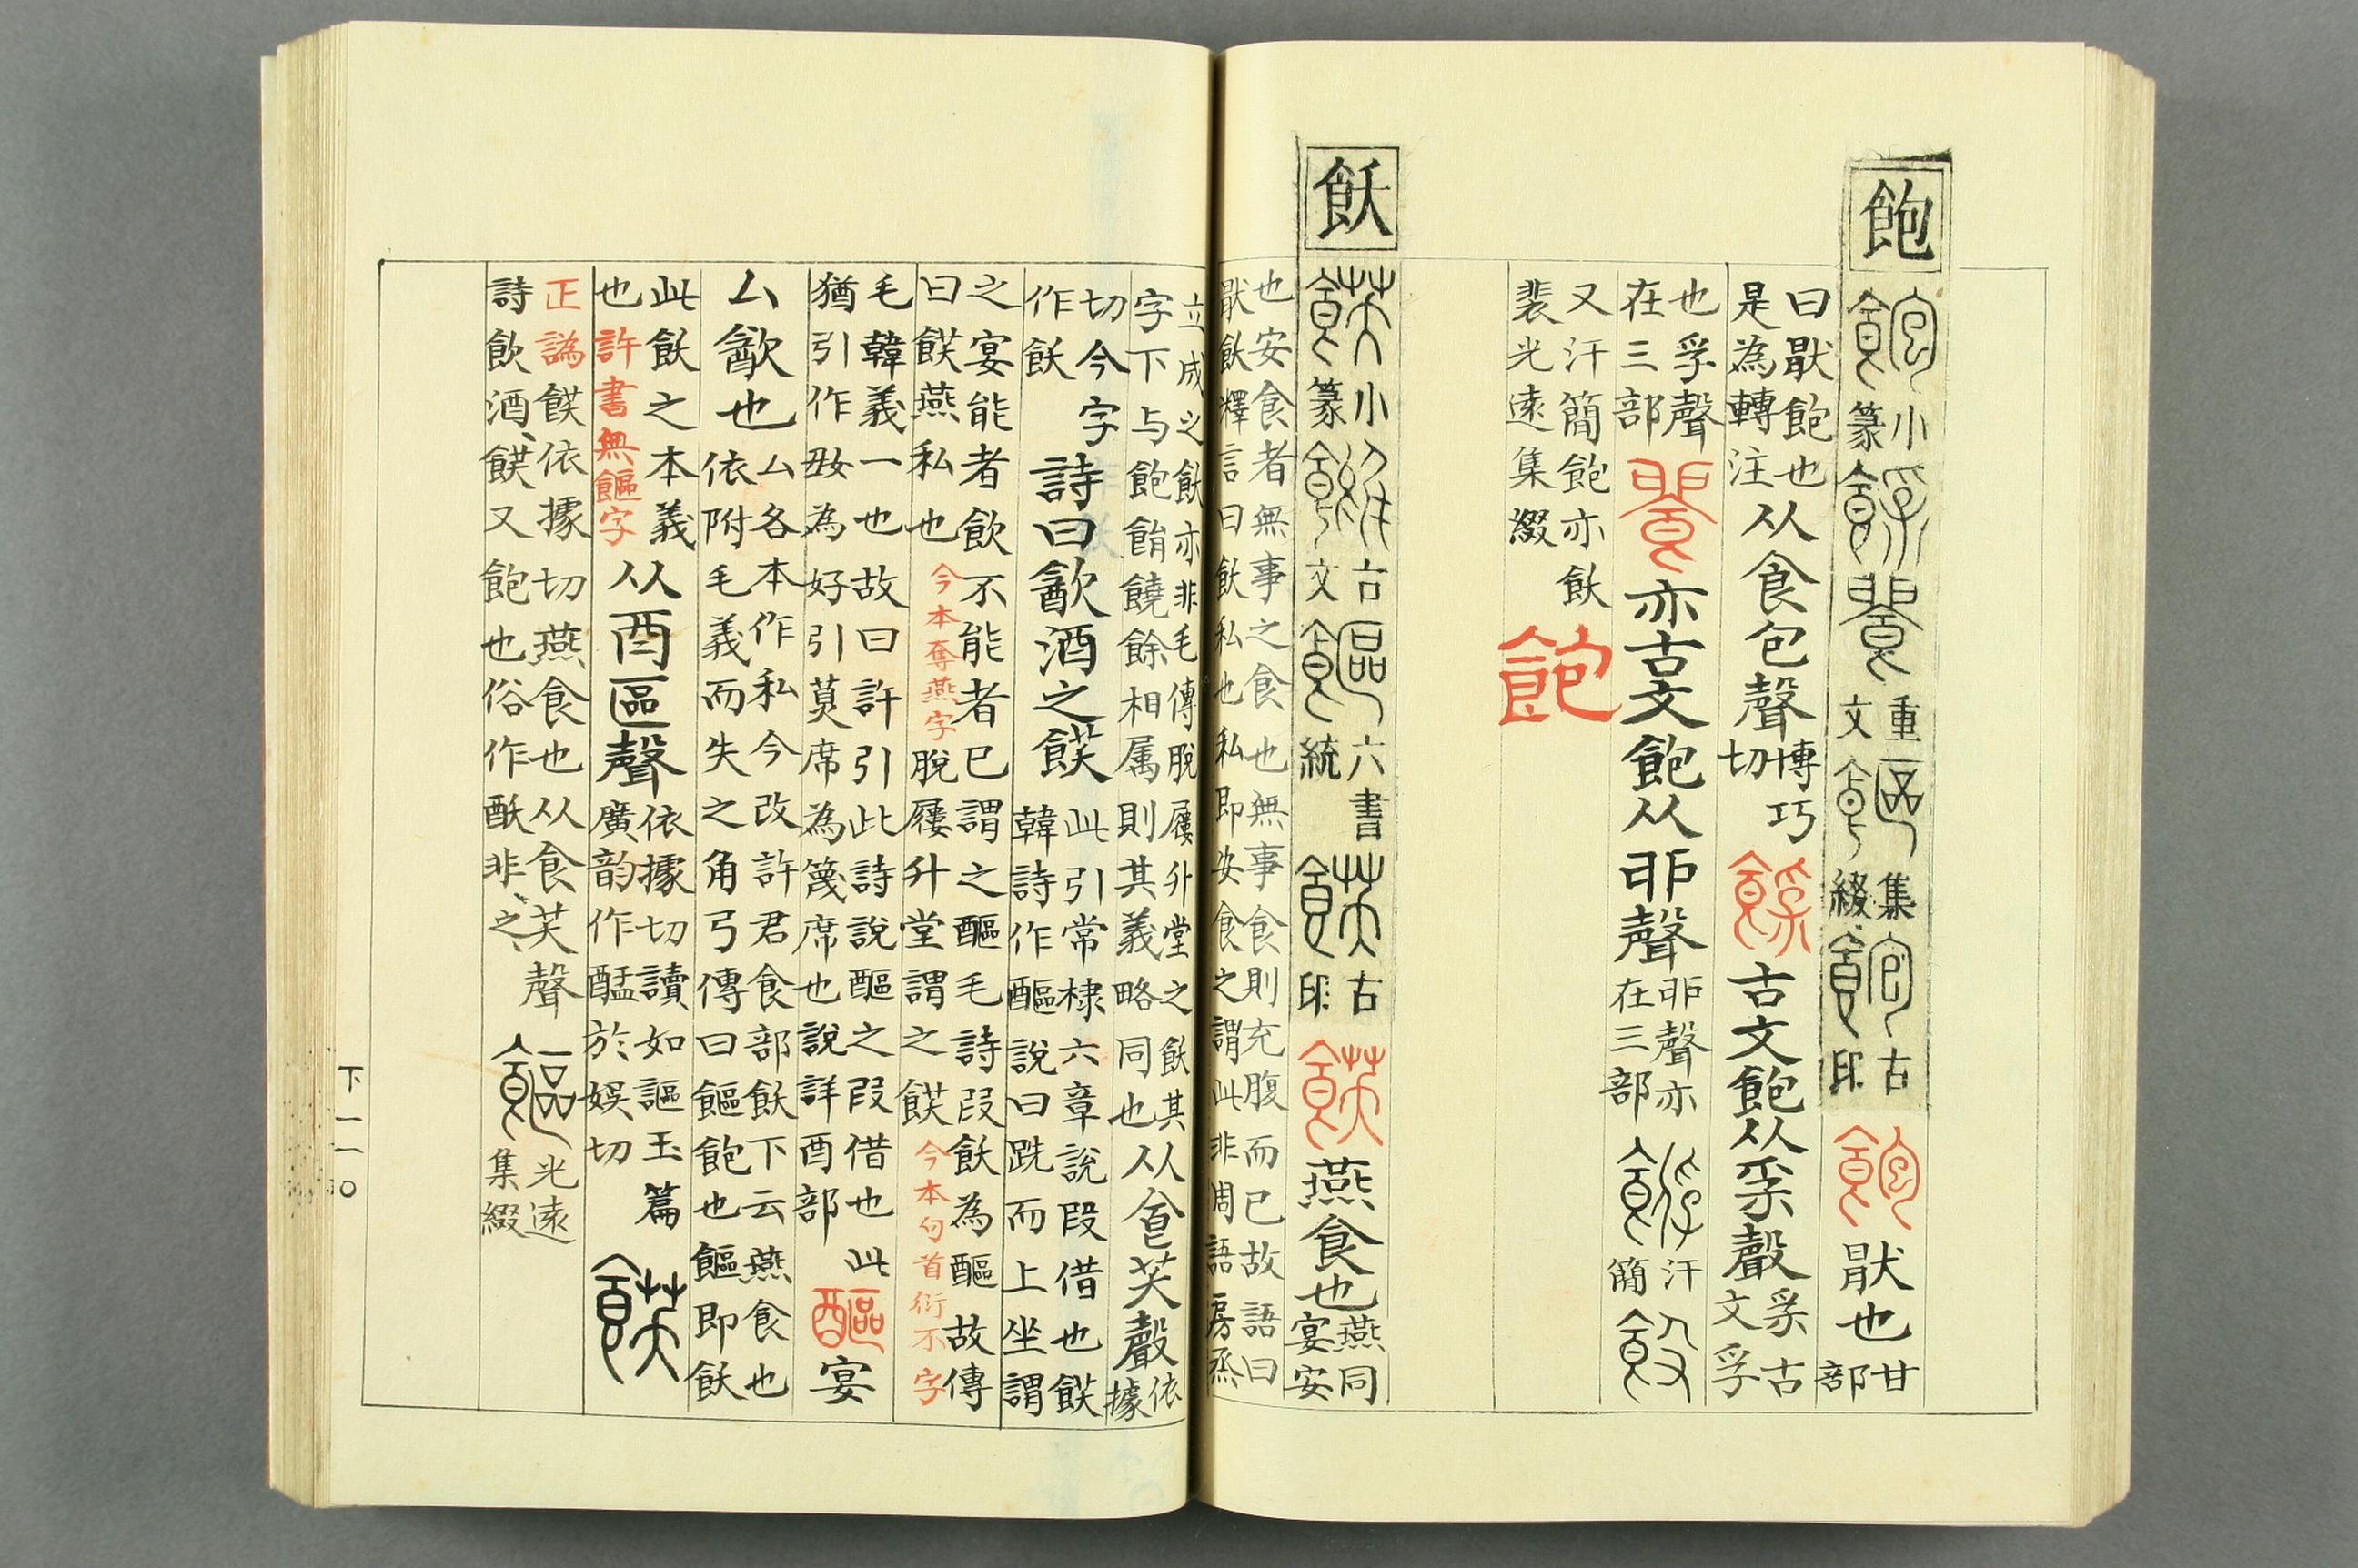 飽 小篆 重文 集綴 古印 猒也 甘部
曰猒飽也是為轉注 从食包聲 博巧切 古文飽从𤓽聲 𤓽古文孚
也孚聲在三部 亦古文飽从戼聲 戼聲亦在三部 汗簡
又汗簡飽亦飫裴光遠集綴 飽
飫 小篆 古文 六書統 古印 燕食也 燕同宴宴安
也安食者無事之食也無事食則充腹而已故語曰
猒飫釋言曰飫私也私即安食之謂此非周語房烝
立成之飫亦非毛傳脫屨升堂之飫其
字下与飽䬼饒餘相属則其義略同也 从食芺聲 依據
切今字作飫 詩曰㱃酒之䬴 此引常棣六章說叚借也䬴
韓詩作醧說曰跣而上坐謂
之宴能者飲不能者已謂之醧毛詩叚飫為醧故傳
曰䬴燕私也 今本奪燕字 脫屨升堂謂之䬴 今本句首衍不字
毛韓義一也故曰許引此詩說醧之叚借也此
猶引作㚼為好引莫席為篾席也說詳酉部 醧 宴
厶㱃也 厶各本作私今改許君食部飫下云燕食也
依附毛義而失之角弓傳曰饇飽也饇即飫
此飫之本義也 許書無饇字 从酉區聲 依據切讀如謳玉篇
廣韵作醧於娛切
正譌䬴依據切燕食也从食芺聲 光遠集綴
詩飲酒䬴又飽也俗作䣧非之
下一一〇